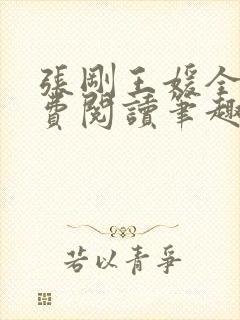 張剛王媛全
費閱讀筆趣
若以青爭